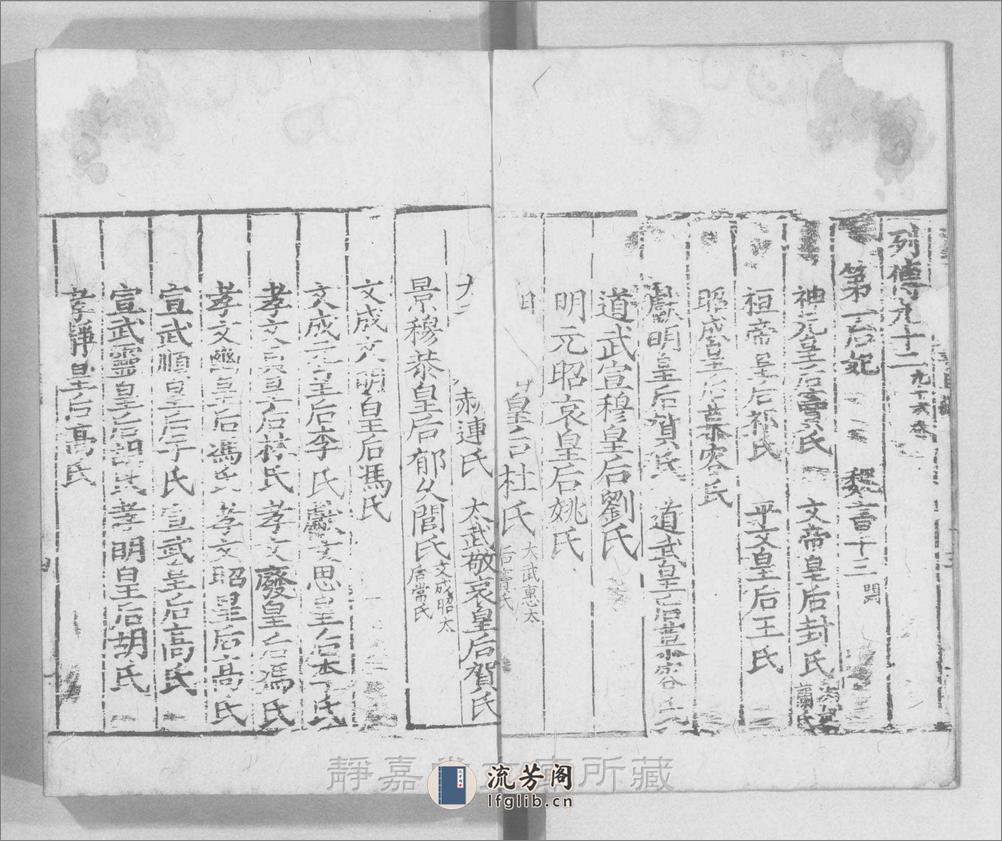 列傳九十二九十六卷
第一后妃 魏書十三 闕
神元皇后竇氏 文帝皇后封氏
桓帝皇后祁氏 平文皇后王氏
昭成皇后慕容氏
獻明皇后賀氏 道武皇后慕容氏
道武宣穆皇后劉氏
明元昭哀皇后姚氏
皇后杜氏 太武惠太后竇氏
赫連氏 太武敬哀皇后賀氏
景穆恭皇后郁久閭氏 文成昭太后常氏
文成文明皇后馮氏
文成元皇后李氏 獻文思皇后李氏
孝文貞皇后林氏 孝文廢皇后馮氏
孝文幽皇后馮氏 孝文昭皇后高氏
宣武順皇后于氏 宣武皇后高氏
宣武靈皇后胡氏 孝明皇后胡氏
孝靜皇后高氏
靜嘉堂文庫所藏
流芳阁
lfglib.cn